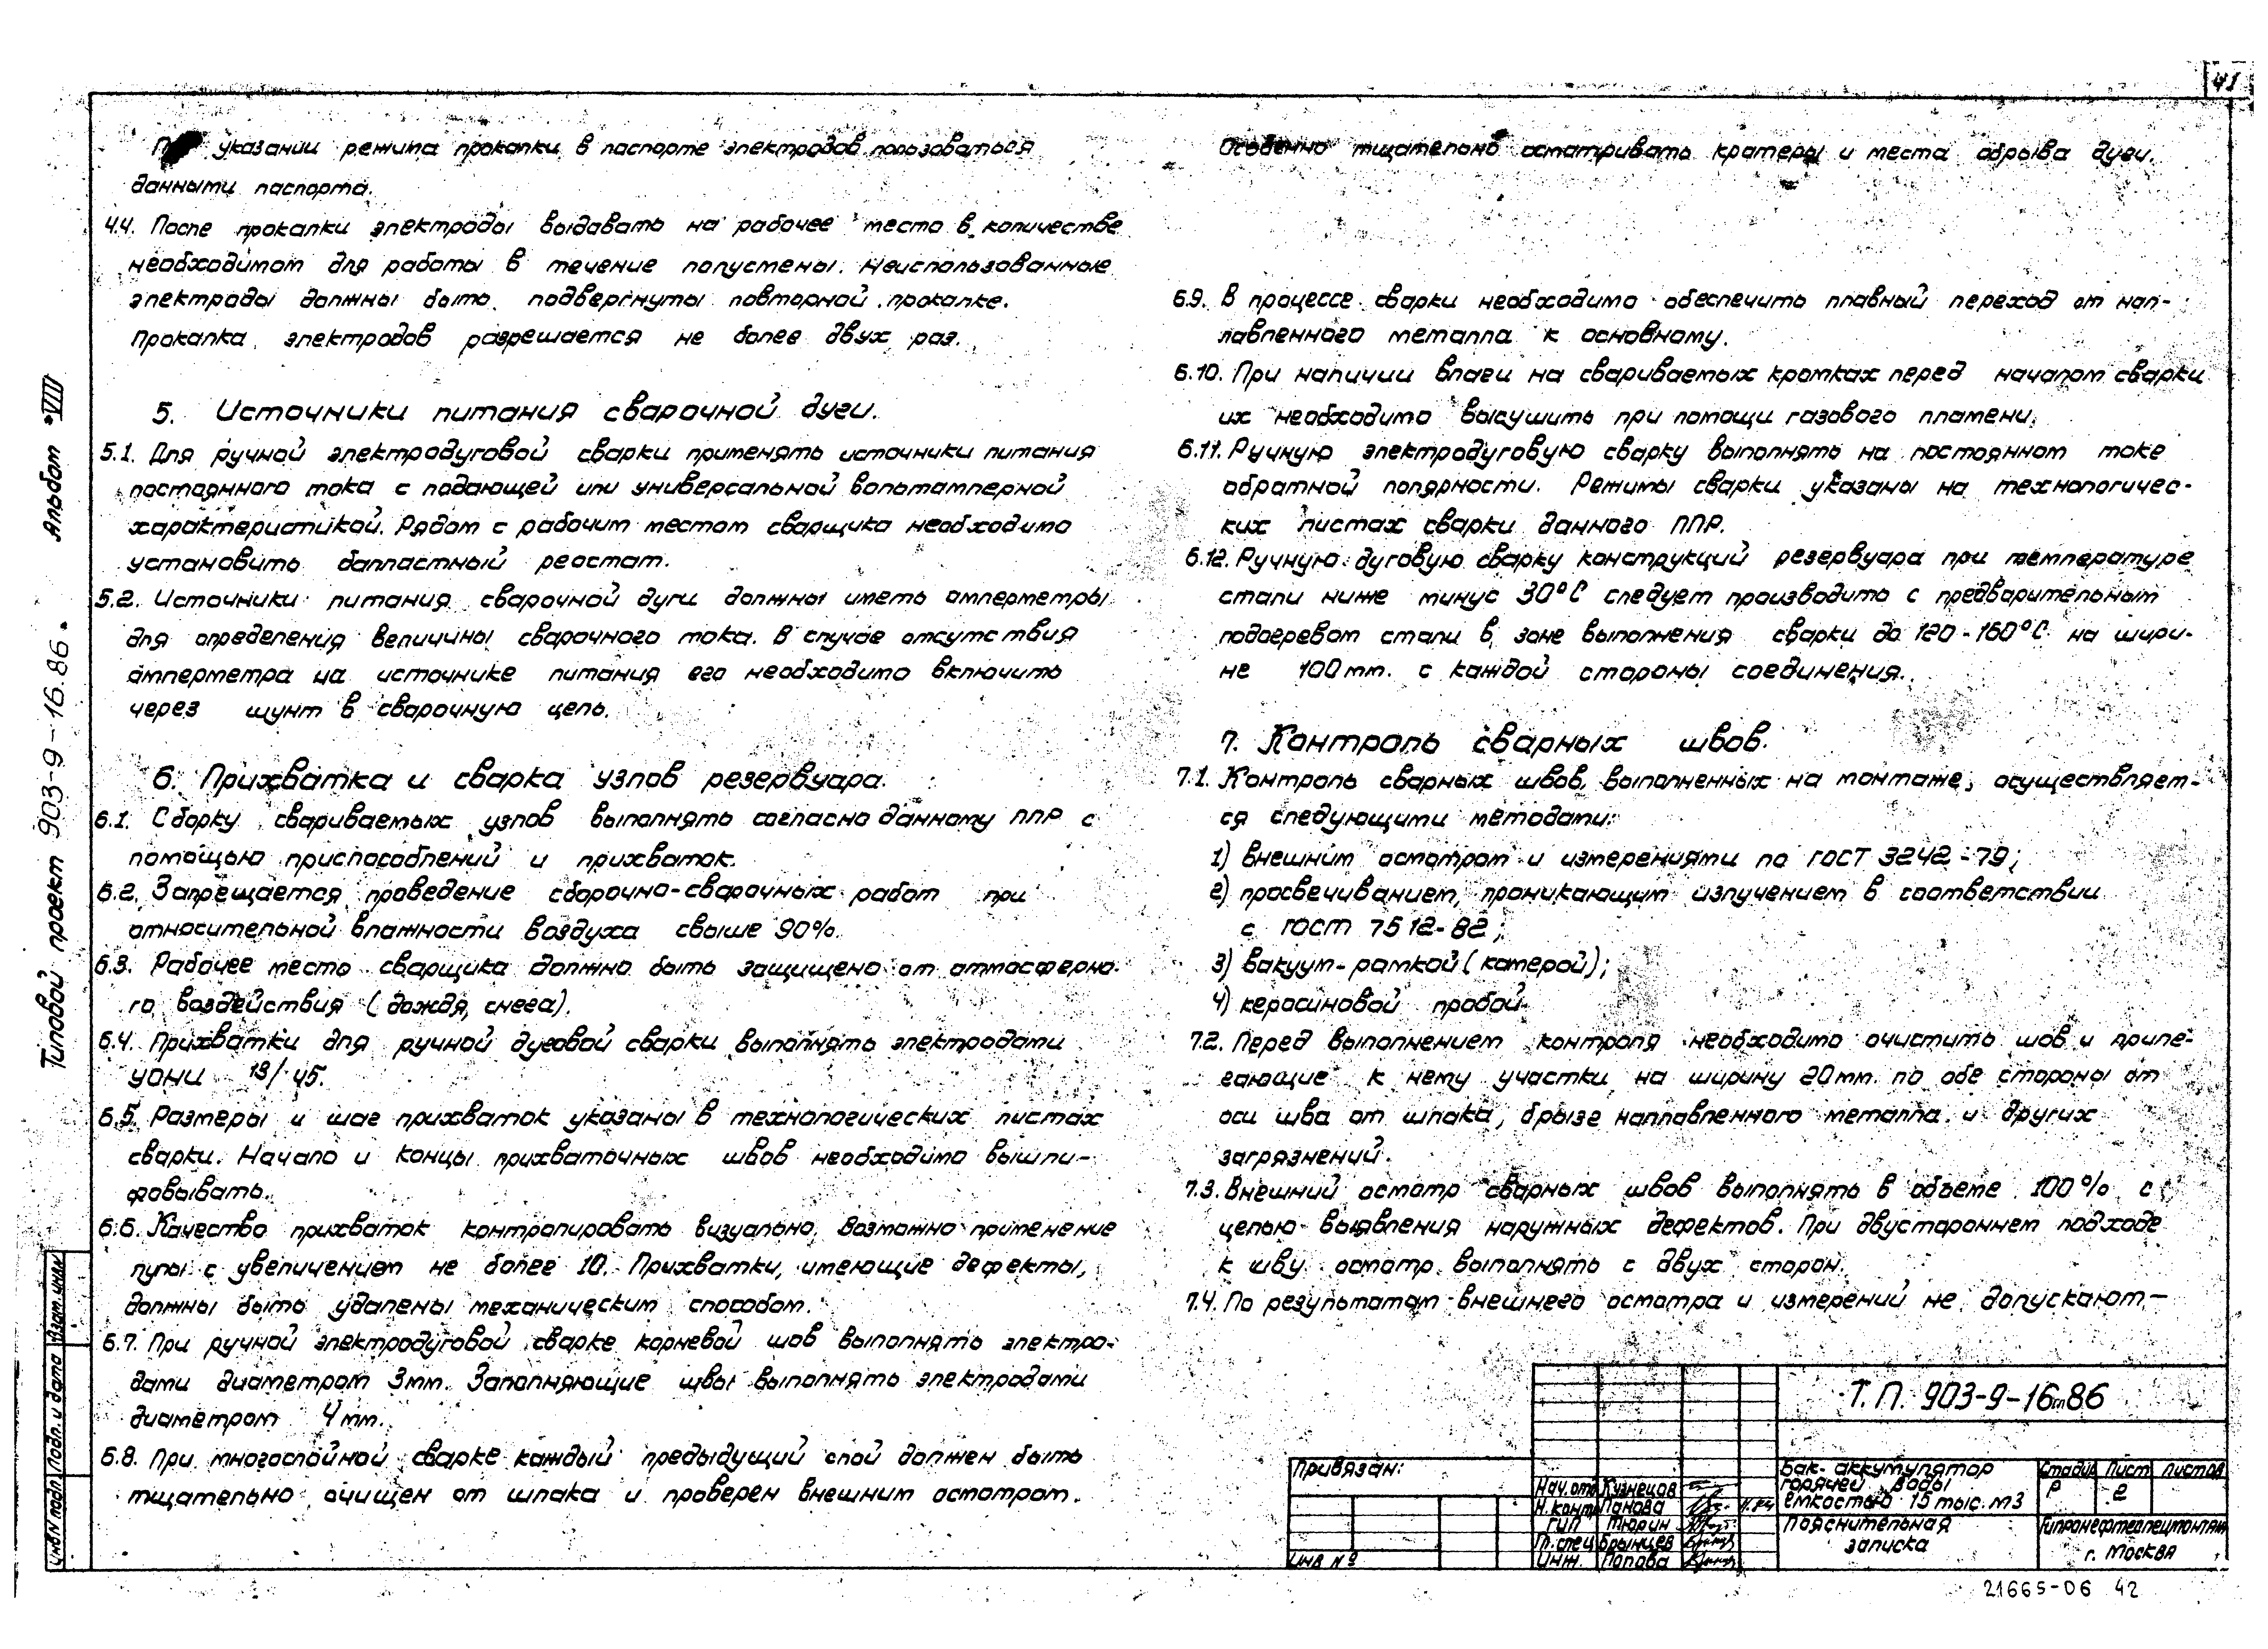 41
При указании режима прокалки в паспорте электродов пользоваться
данными паспорта.
4.4. После прокалки электроды выдавать на рабочее место в количестве
необходимом для работы в течение полусмены. Неиспользованные
электроды должны быть подвергнуты повторной прокалке.
Прокалка электродов разрешается не более двух раз.
5. Источники питания сварочной дуги.
5.1. Для ручной электродуговой сварки применять источники питания
постоянного тока с падающей или универсальной вольтамперной
характеристикой. Рядом с рабочим местом сварщика необходимо
установить балластный реостат.
5.2. Источники питания сварочной дуги должны иметь амперметры
для определения величины сварочного тока. В случае отсутствия
амперметра на источнике питания его необходимо включить
через шунт в сварочную цепь.
6. Прихватка и сварка узлов резервуара.
6.1. Сборку свариваемых узлов выполнять согласно данному ППР с
помощью приспособлений и прихваток.
6.2. Запрещается проведение сборочно-сварочных работ при
относительной влажности воздуха свыше 90%.
6.3. Рабочее место сварщика должно быть защищено от атмосферно-
го воздействия (дождя, снега).
6.4. Прихватки для ручной дуговой сварки выполнять электродами
УОНИ 13/45.
6.5. Размеры и шаг прихваток указаны в технологических листах
сварки. Начало и концы прихваточных швов необходимо вышли-
фовывать.
6.6. Качество прихваток контролировать визуально, возможно применение
лупы с увеличением не более 10. Прихватки, имеющие дефекты,
должны быть удалены механическим способом.
6.7. При ручной электродуговой сварке корневой шов выполнять электро-
дами диаметром 3мм. Заполняющие швы выполнять электродами
диаметром 4мм.
6.8. При многослойной сварке каждый предыдущий слой должен быть
тщательно очищен от шлака и проверен внешним осмотром.
Особенно тщательно осматривать кратеры и места обрыва дуги.
6.9. В процессе сварки необходимо обеспечить плавный переход от нап-
лавленного металла к основному.
6.10. При наличии влаги на свариваемых кромках перед началом сварки
их необходимо высушить при помощи газового пламени.
6.11. Ручную электродуговую сварку выполнять на постоянном токе
обратной полярности. Режимы сварки указаны на технологичес-
ких листах сварки данного ППР.
6.12. Ручную дуговую сварку конструкций резервуара при температуре
стали ниже минус 30°С следует производить с предварительным
подогревом стали в зоне выполнения сварки до 120-160°С на шири-
не 100мм. с каждой стороны соединения.
7. Контроль сварных швов.
7.1. Контроль сварных швов, выполненных на монтаже, осуществляет-
ся следующими методами:
1) внешним осмотром и измерениями по ГОСТ 3242-79;
2) просвечиванием, проникающим излучением в соответствии
с ГОСТ 7512-82;
3) вакуум-рамкой (камерой);
4) керосиновой пробой.
7.2. Перед выполнением контроля необходимо очистить шов и приле-
гающие к нему участки на ширину 20мм. по обе стороны от
оси шва от шлака, брызг наплавленного металла и других
загрязнений.
7.3. Внешний осмотр сварных швов выполнять в объеме 100% с
целью выявления наружных дефектов. При двустороннем подходе
к шву осмотр выполнять с двух сторон.
7.4. По результатам внешнего осмотра и измерений не допускают-
Типовой проект 903-9-16.86. Альбом VIII
Инв.N подл. Подп. и дата Взам.инв.
Привязан:
Инв.№
Нач.отд. Кузнецов
Н.контр. Панова
ГИП Тюрин
Гл.спец. Брынцев
Инж. Попова
Т.П. 903-9-16сп86
Бак-аккумулятор
горячей воды
емкостью 15 тыс.м3
Стадия Лист Листов
Р 2
Пояснительная
записка
Гипронефтеспецмонтаж
г. Москва
21665-06 42